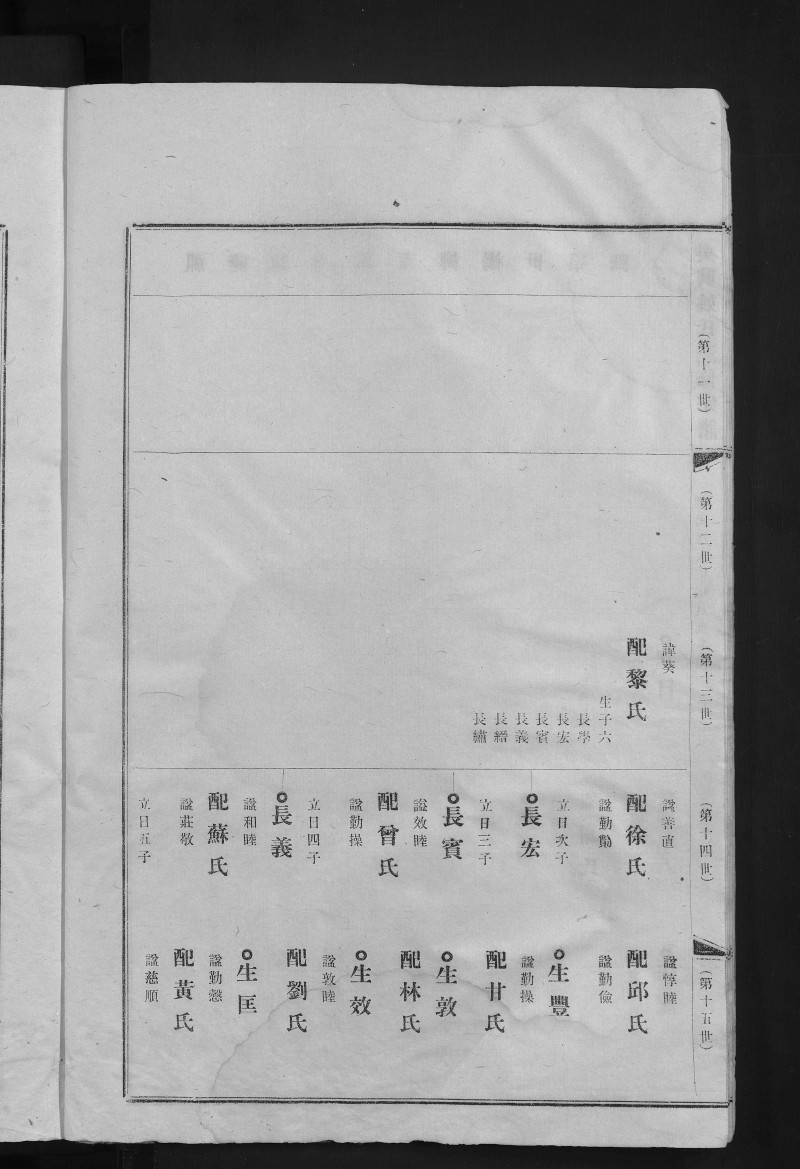 (第十一世)
(第十二世)
(第十三世)
諱葵
配黎氏
生子六
長學
長宏
長賓
長義
長縉
長繡
(第十四世)
諡善直
配徐氏
諡勤勷
立日次子
長宏
立日三子
長賓
諡效睦
配曾氏
諡勤操
立日四子
長義
諡和睦
配蘇氏
諡莊敬
立日五子
(第十五世)
諡惇睦
配邱氏
諡勤儉
生豐
諡勤操
配甘氏
生敦
配林氏
生效
諡敦睦
配劉氏
生匡
諡勤慤
配黃氏
諡慈順